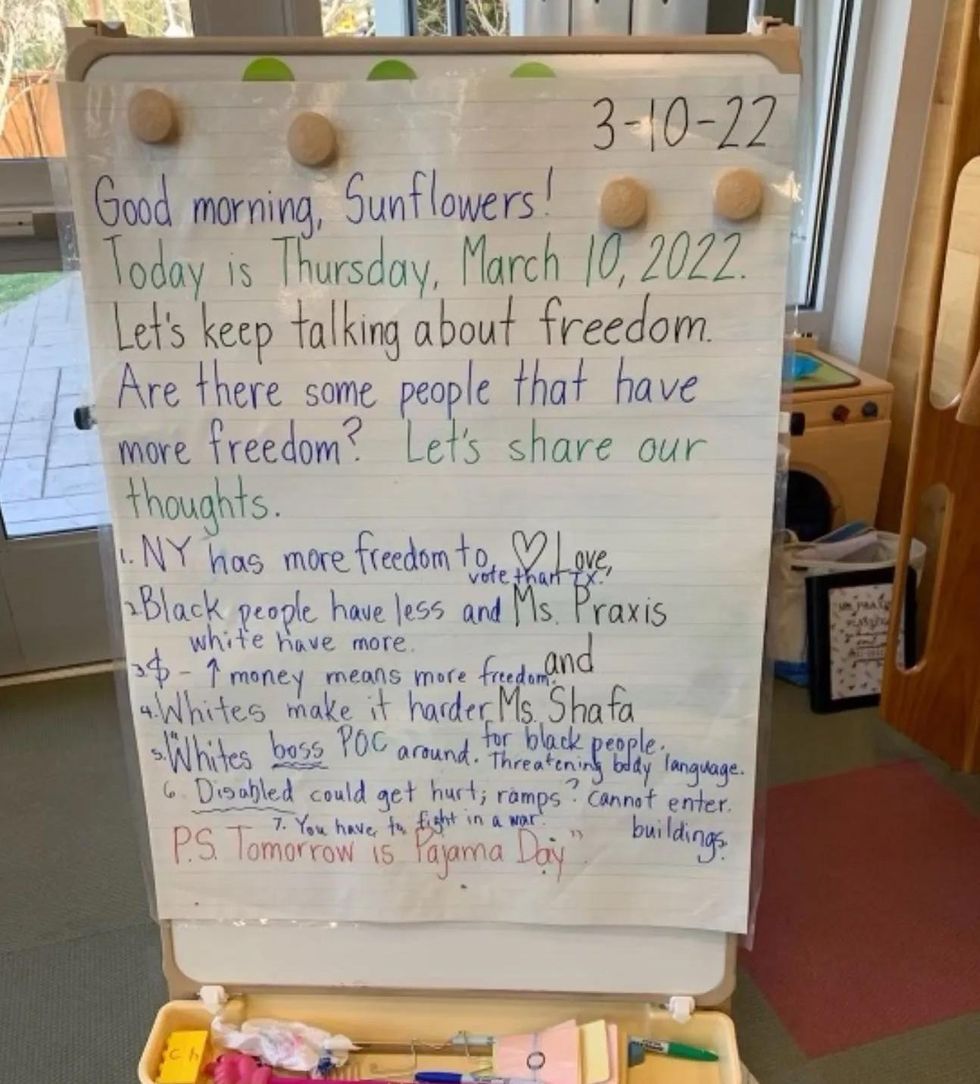 3-10-22
Good morning, Sunflowers!
Today is Thursday, March 10, 2022.
Let's keep talking about freedom.
Are there some people that have
more freedom? Let's share our
thoughts.
1. NY has more freedom to
vote than TX.
♡ Love,
2. Black people have less and
white have more.
Ms. Praxis
3. $ - ↑ money means more freedom.
and
4. Whites make it harder
for black people.
Ms. Shafa
5. "Whites boss POC around. Threatening body language.
6. Disabled could get hurt; ramps? cannot enter
buildings.
7. You have to fight in a war.
P.S. Tomorrow is Pajama Day"
ch